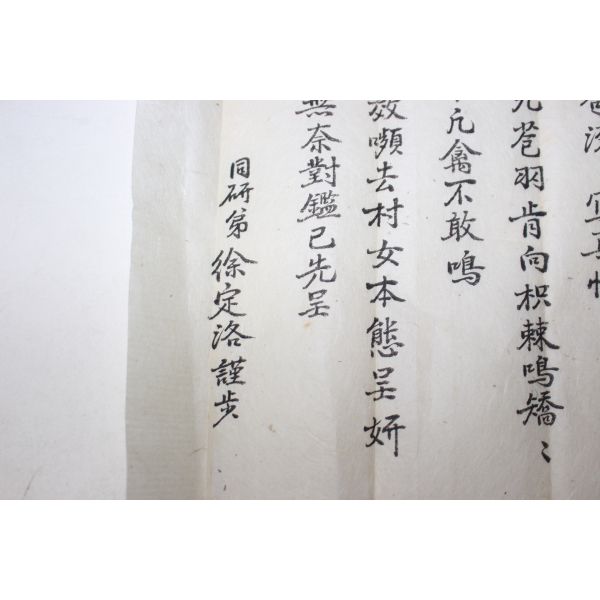 苞羽肯向枳棘鳴矯〻
凡禽不敢鳴
效嚬去村女本態呈妍
無奈對鑑已先呈
同硏弟徐定洛謹步